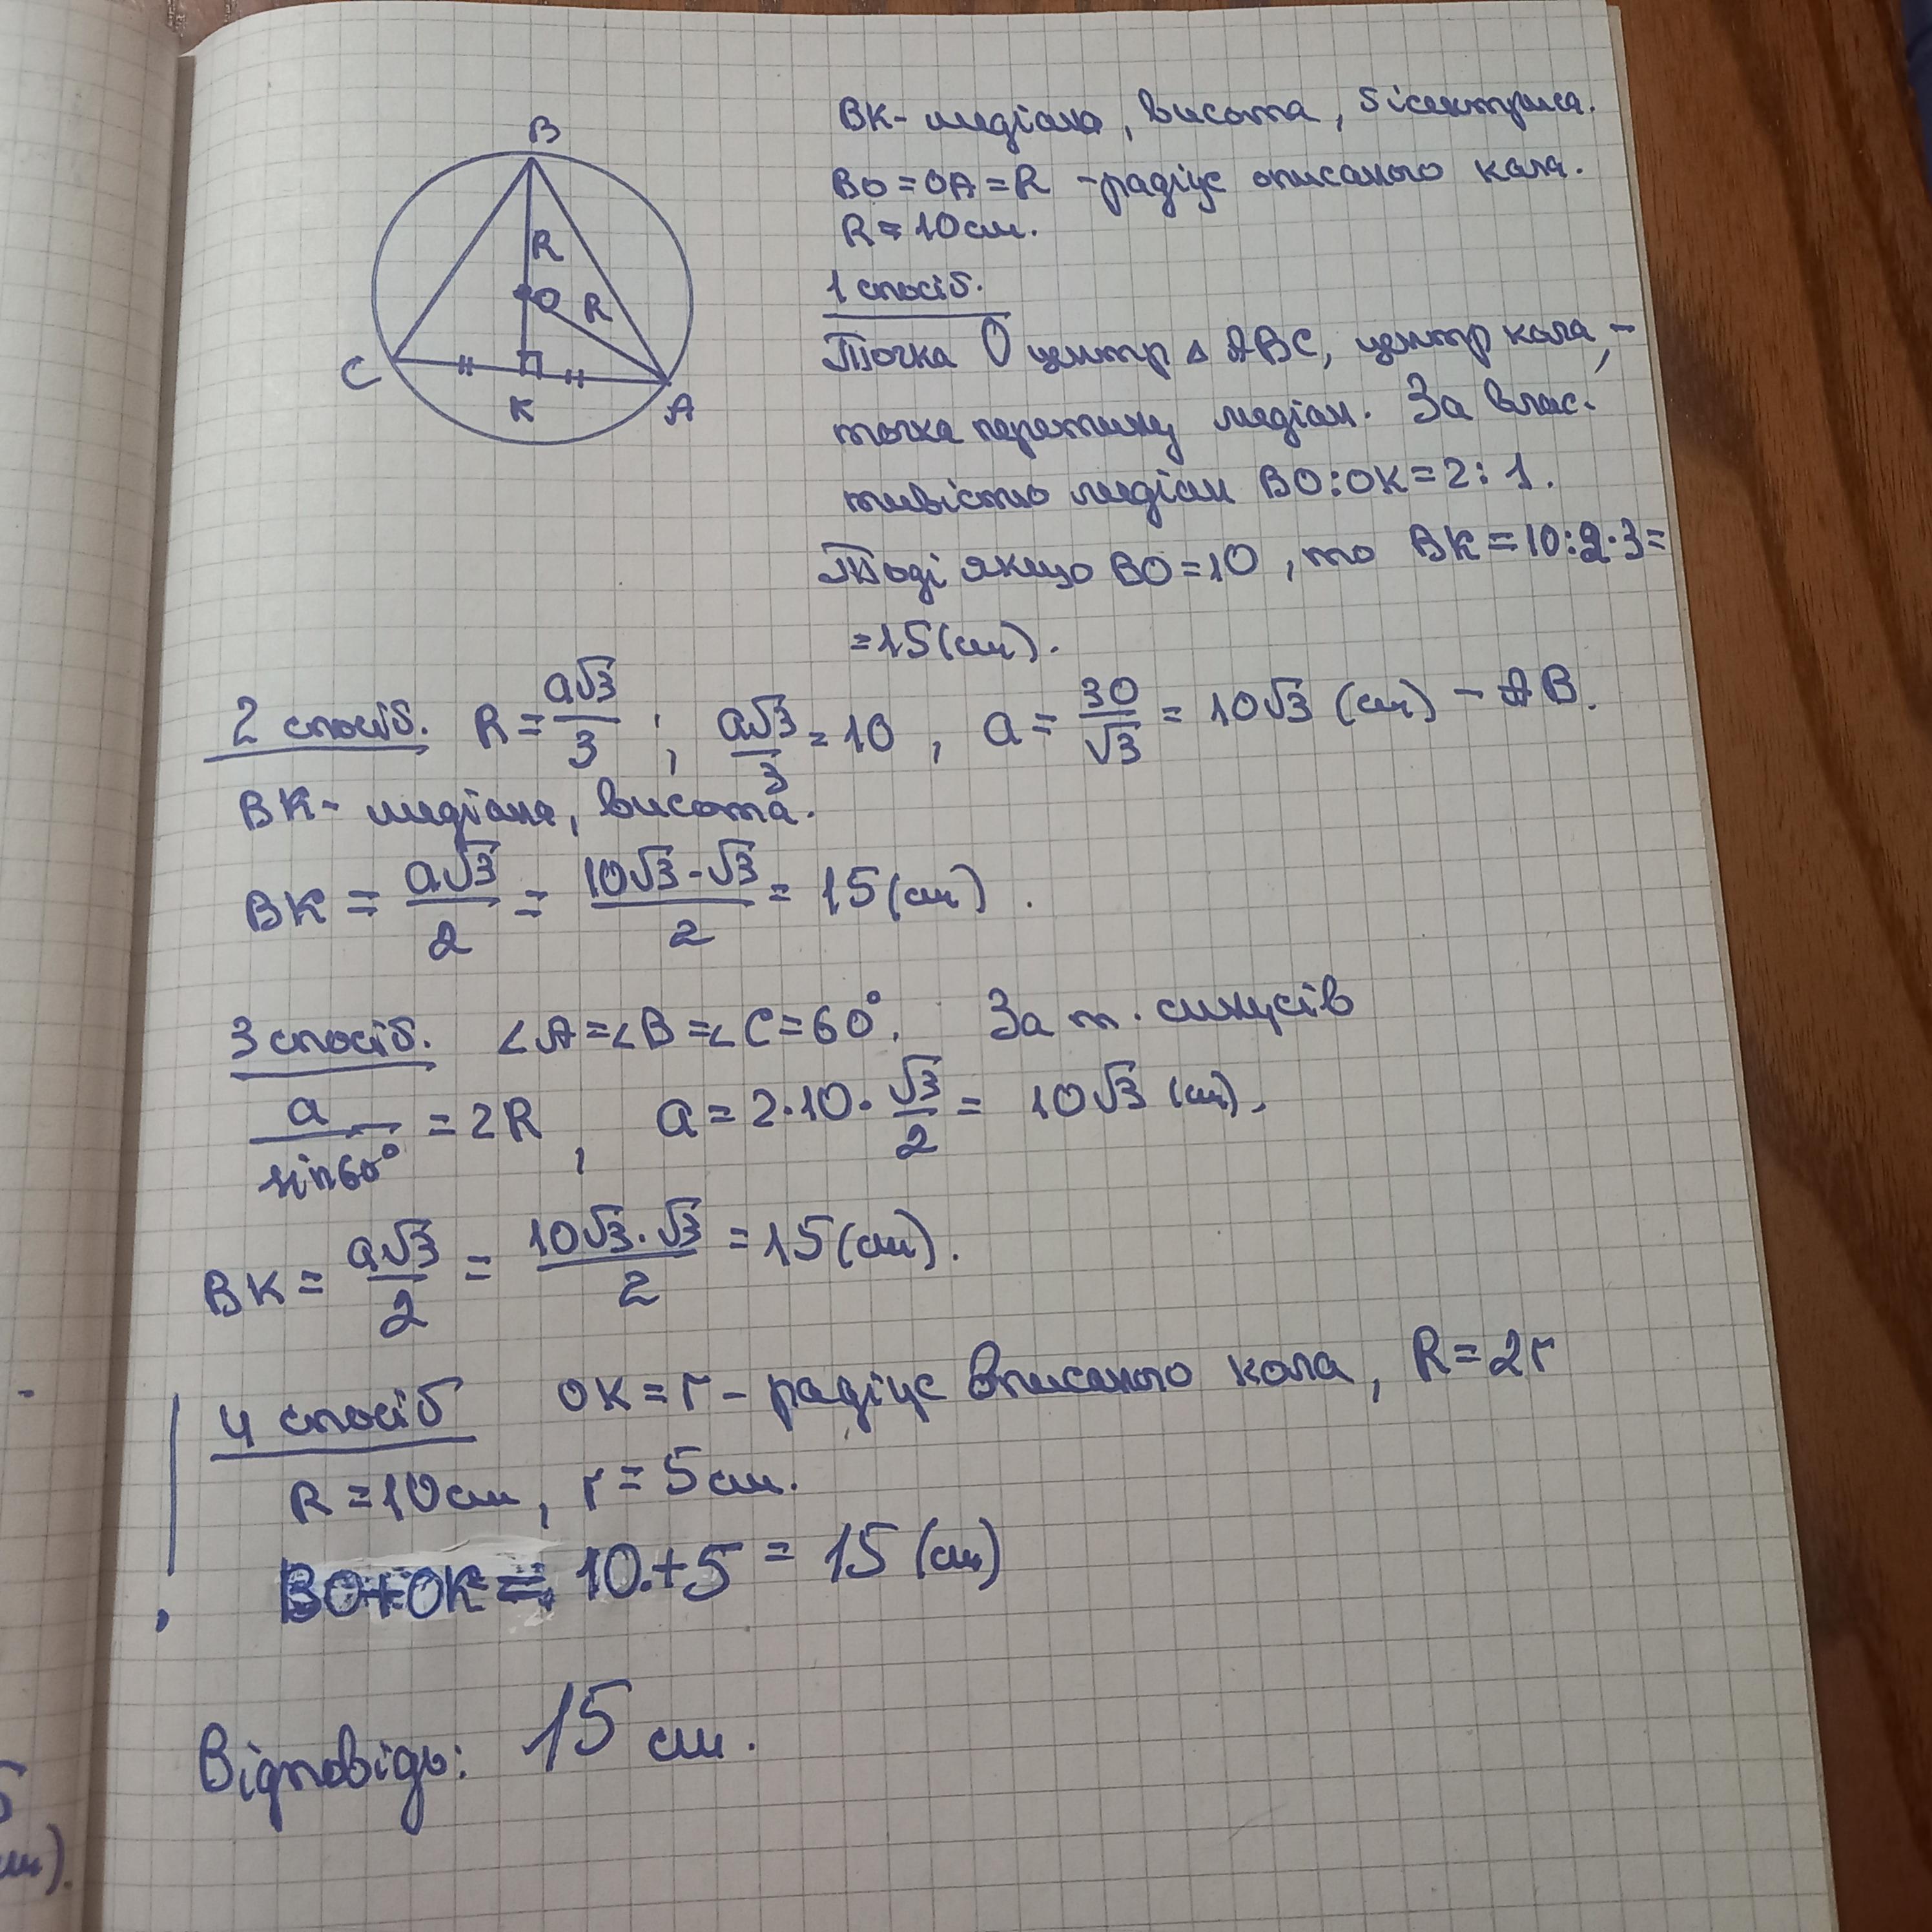 B
R
O R
C
K
A
BK- медіана, висота, бісектриса.
BO=OA=R -радіус описаного кола.
R=10см.
1 спосіб.
Точка О центр △ ABC, центр кола, -
точка перетину медіан. За влас-
тивістю медіан BO:OK=2:1.
Тоді якщо BO=10, то BK=10:2·3=
=15(см).
2 спосіб. R=a√3/3; a√3/3=10, a=30/√3=10√3 (см) - AB.
BK- медіана, висота.
BK=a√3/2=10√3-√3/2=15(см).
3 спосіб. ∠A=∠B=∠C=60°. За т. синусів
a/sin60°=2R, a=2·10·√3/2=10√3 (см).
BK=a√3/2=10√3·√3/2=15(см).
4 спосіб OK=r- радіус вписаного кола, R=2r
R=10см, r=5см.
BO+OK= 10.+5=15(см)
Відповідь: 15 см.
см).